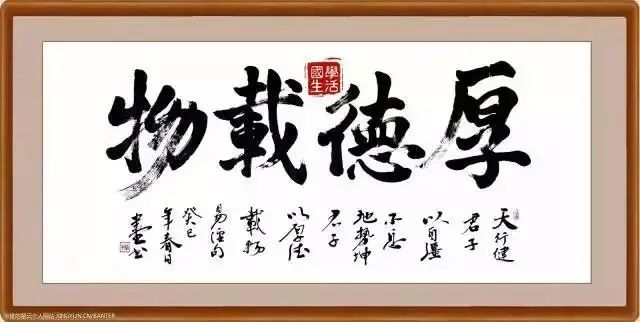 厚德載物
國學
生活
天行健
君子
以自彊
不息
地勢坤
君子
以厚德
載物
易經句
癸巳
年春日
书
个人网站 XINGYUN.CN/BANTER